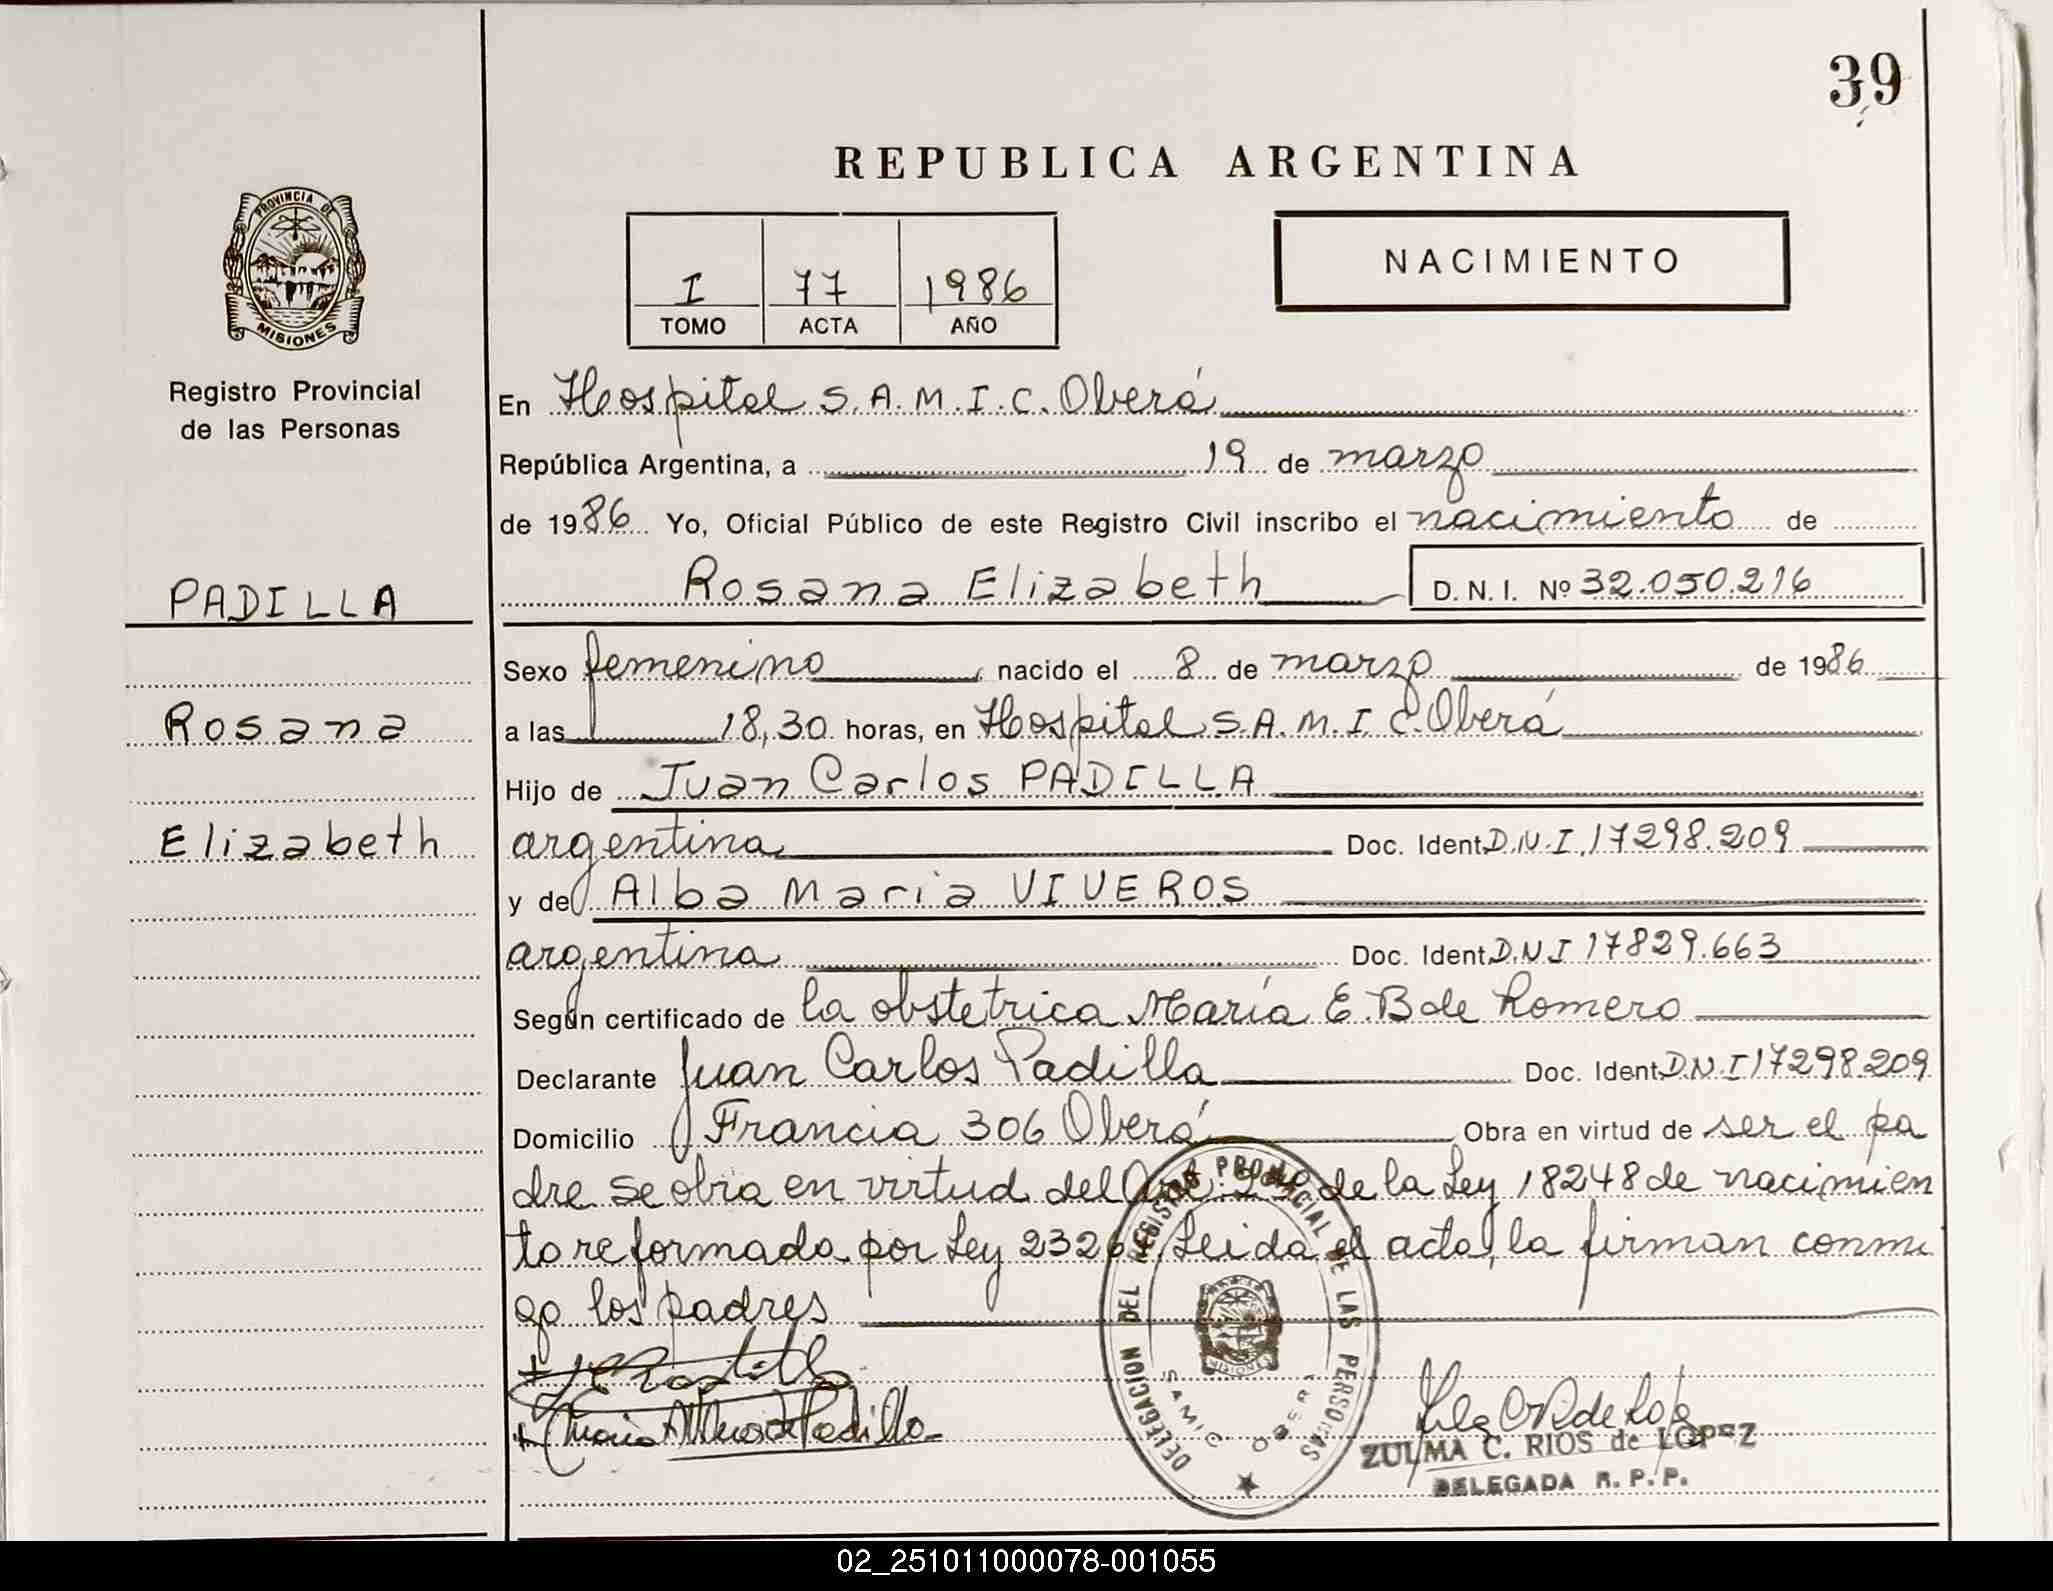 39
REPUBLICA ARGENTINA
PROVINCIA DE
MISIONES
Registro Provincial
de las Personas
I 77 1986
TOMO ACTA AÑO
NACIMIENTO
En Hospital S.A.M.I.C. Oberá
República Argentina, a 19 de marzo
de 1986 Yo, Oficial Público de este Registro Civil inscribo el nacimiento de
Rosana Elizabeth D.N.I. Nº 32.050.216
PADILLA
Rosana
Elizabeth
Sexo femenino, nacido el 8 de marzo de 1986
a las 18,30 horas, en Hospital S.A.M.I.C. Oberá
Hijo de Juan Carlos PADILLA
argentina Doc. Ident D.N.I. 17298.209
y de Alba Maria VIVEROS
argentina Doc. Ident D.N.I 17829.663
Según certificado de la obstetrica María E. B de Romero
Declarante Juan Carlos Padilla Doc. Ident D.N.I 17298.209
Domicilio Francia 306 Oberá Obra en virtud de ser el pa
dre se obra en virtud del Art. de la Ley 18248 de nacimien
to reformada por Ley Leida el acta, la firman conmi
go los padres
DELEGACION DEL REGISTRO PROVINCIAL DE LAS PERSONAS
SAMIC OBERA
ZULMA C. RIOS de LOPEZ
DELEGADA R.P.P.
02_251011000078-001055